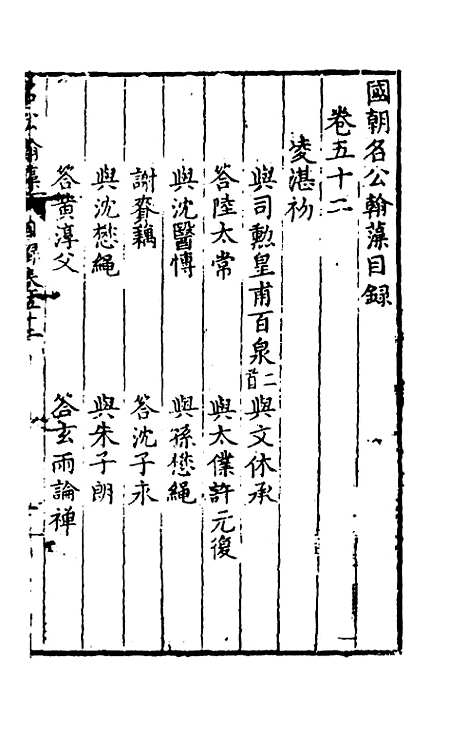 國朝名公翰藻目録
卷五十二
凌湛初
與司勳皇甫百泉二首 與文休承
答陸太常 與太僕許元復
與沈醫博 與孫懋繩
謝賚藕 答沈子永
與沈懋繩 與朱子朗
答黄淳父 答玄雨論禅
名公翰藻 目録卷五十二